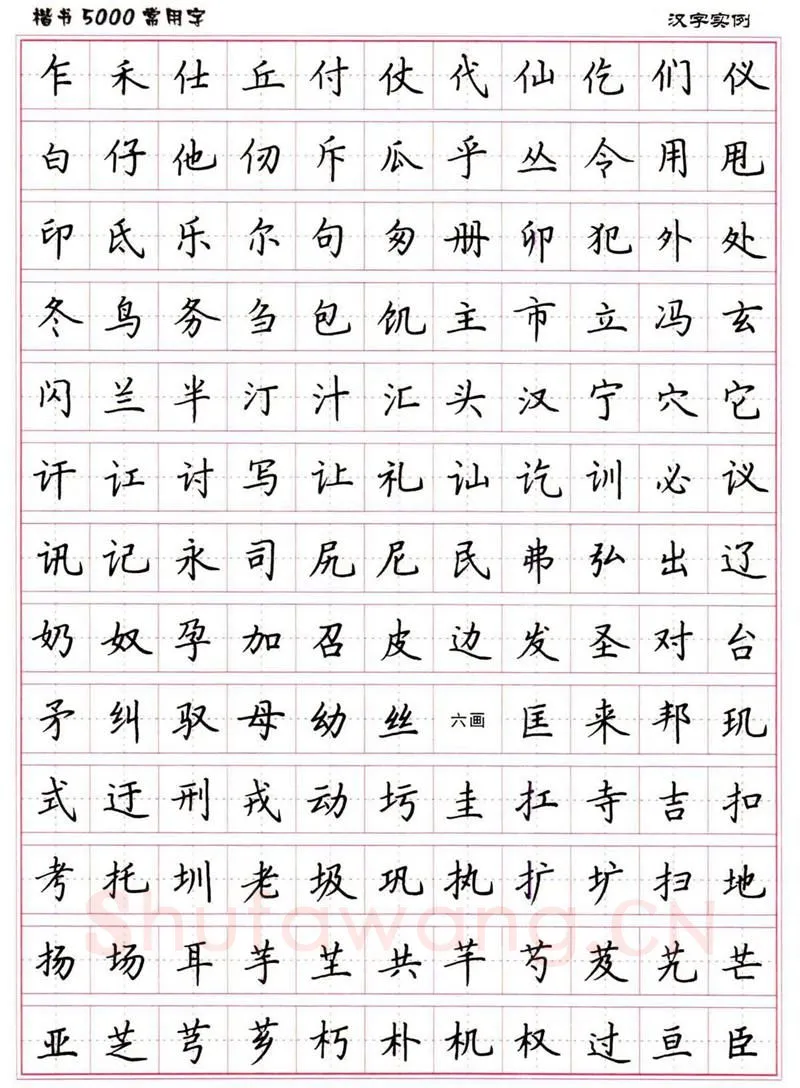 楷书5000常用字 汉字实例
乍禾仕丘付仗代仙仡们仪
白仔他仞斥瓜乎丛令用甩
印氐乐尔句匆册卯犯外处
冬鸟务刍包饥主市立冯玄
闪兰半汀汁汇头汉宁穴它
讦讧讨写让礼讪讫训必议
讯记永司尻尼民弗弘出辽
奶奴孕加召皮边发圣对台
矛纠驭母幼丝六画匡来邦玑
式迂刑戎动圬圭扛寺吉扣
考托圳老圾巩执扩圹扫地
Shufawang.CN
扬场耳芋芏共芊芍芨艽芒
亚芝芎芗朽朴机权过亘臣